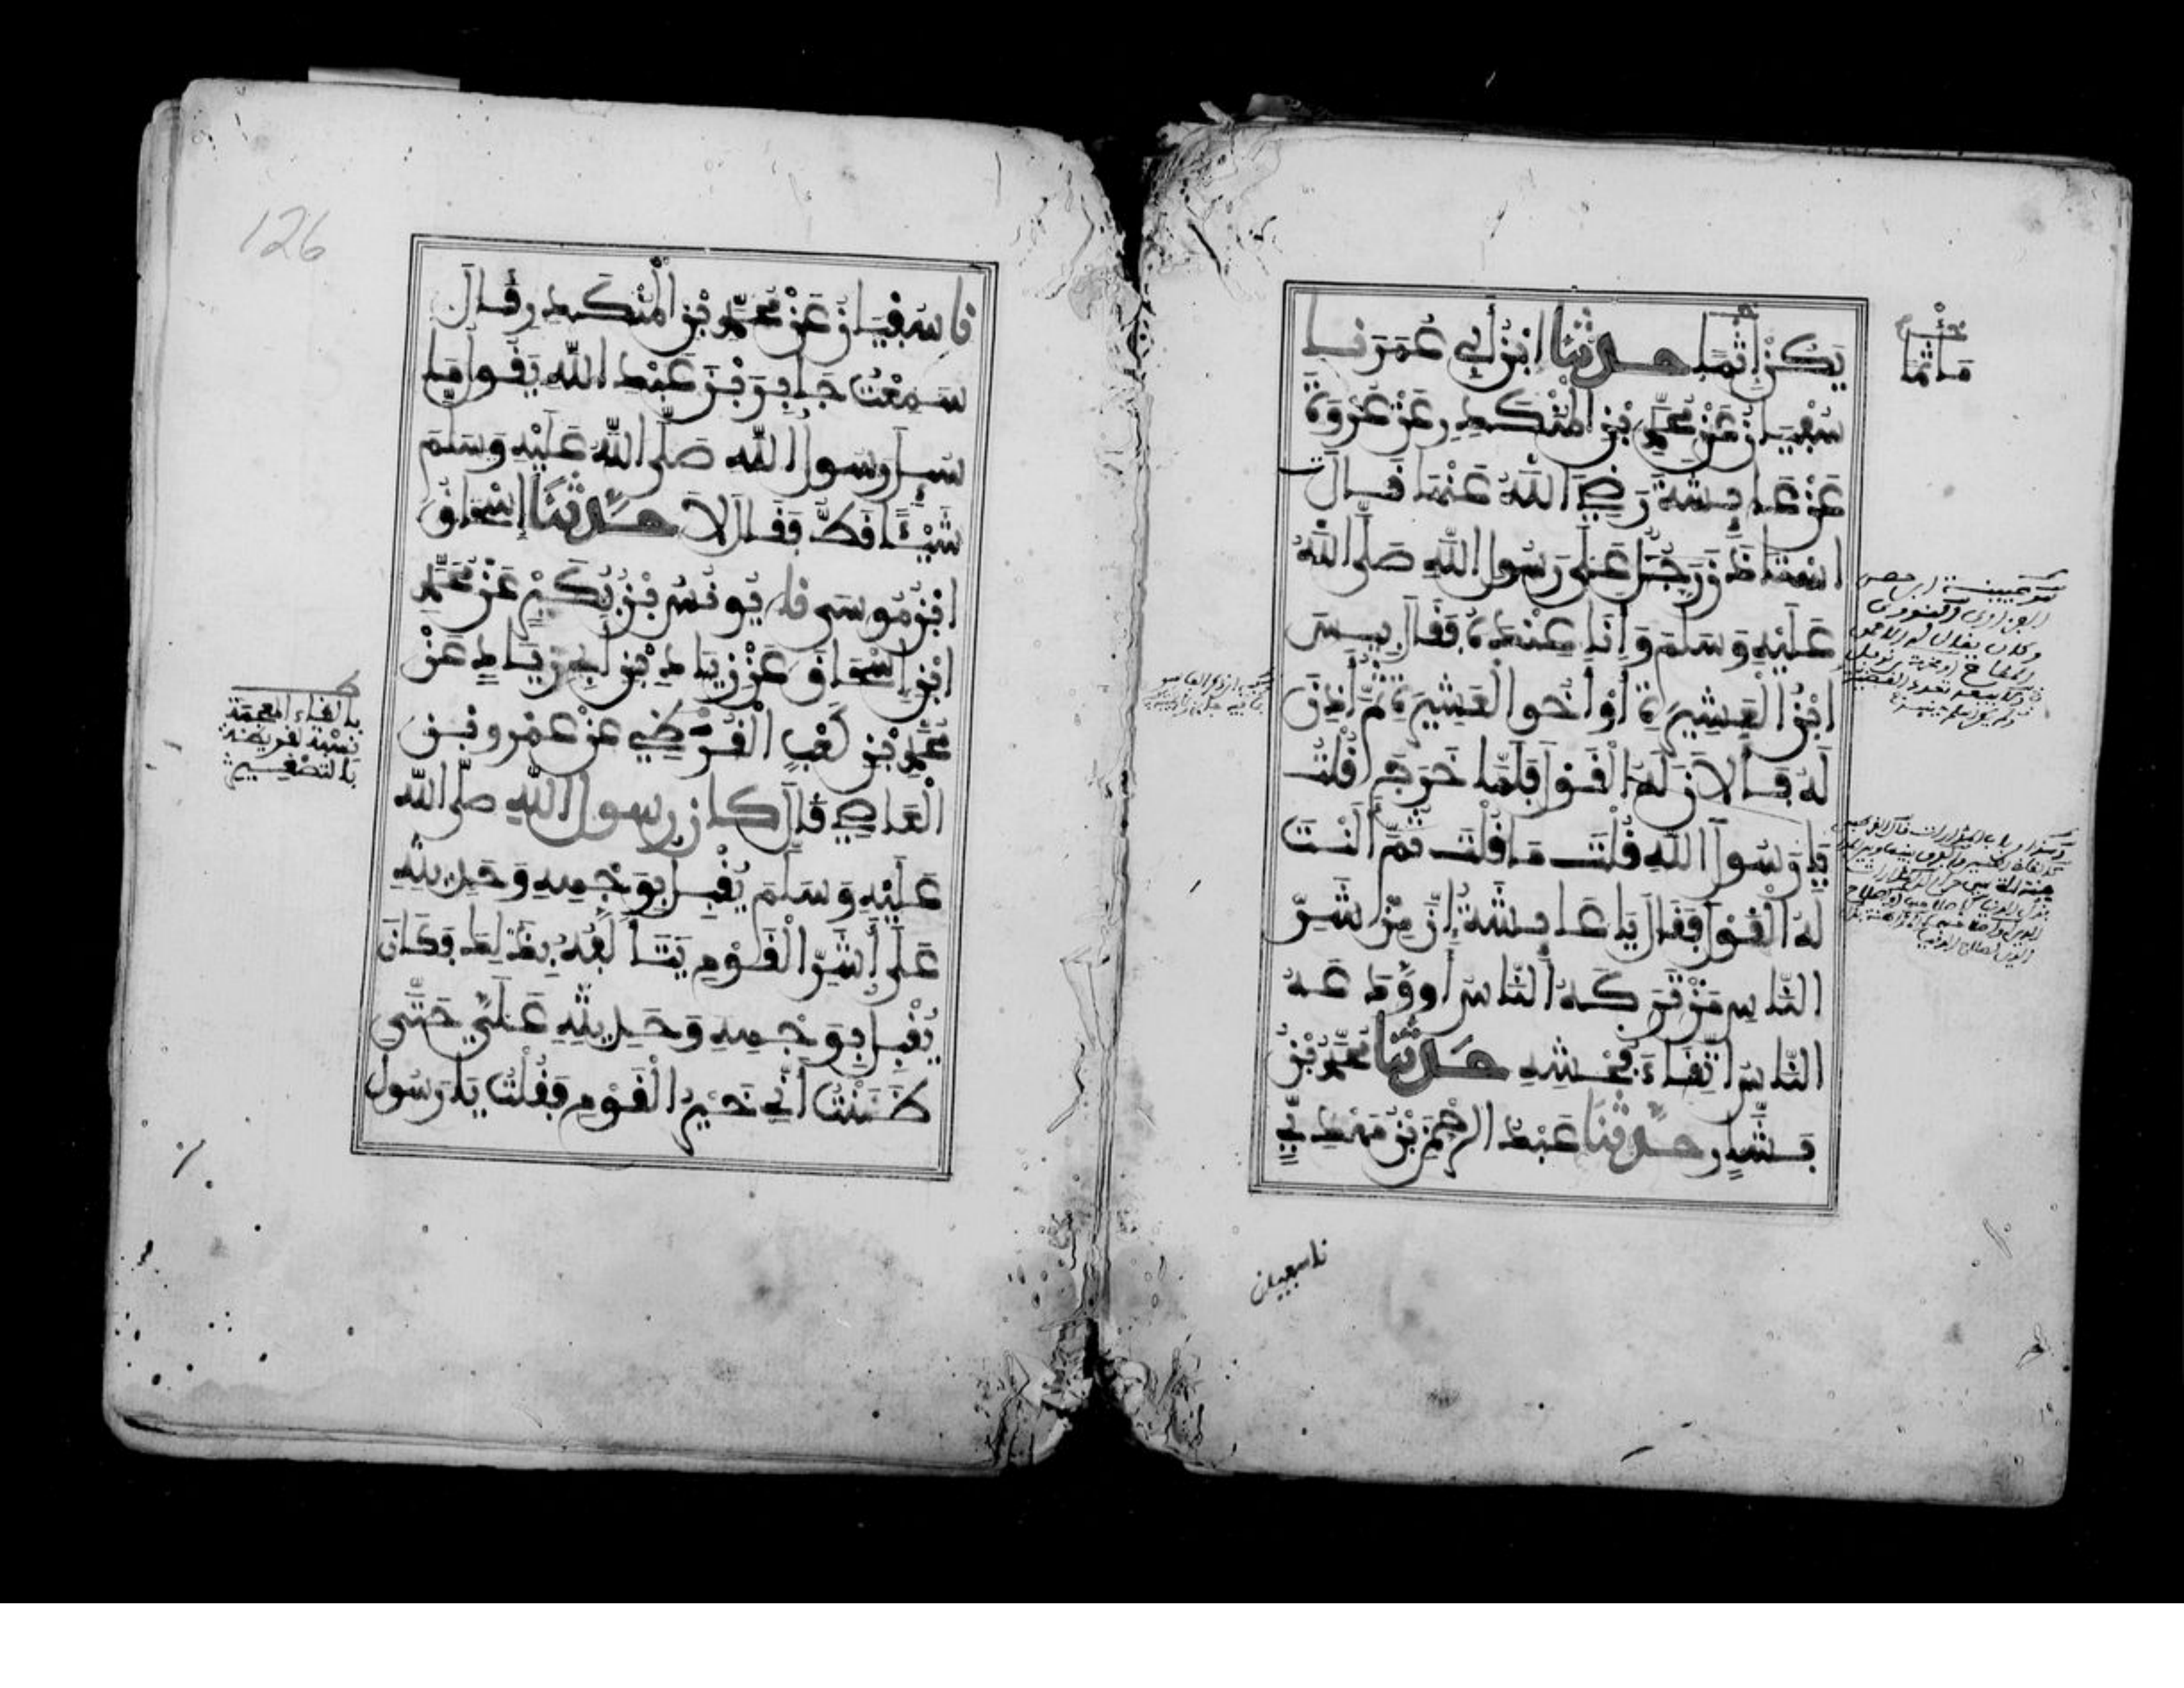 يَكُنْ إِثْمًا حدثنا ابْنُ أَبِي عُمَرَ نا
سُفْيَانُ عَنْ مُحَمَّدِ بْنِ الْمُنْكَدِرِ عَنْ عُرْوَةَ
عَنْ عَائِشَةَ رَضِيَ اللَّهُ عَنْهَا قَالَت
اسْتَاذَنَ رَجُلٌ عَلَى رَسُولِ اللَّهِ صَلَّى اللَّهُ
عَلَيْهِ وَسَلَمَ وَأَنَا عِنْدَهُ فَقَالَ بِيسَ
ابْنُ الْعَشِيرَةِ أَوْ أَخُو الْعَشِيرَةِ ثُمَّ أَذِنَ
لَهُ فَأَلَانَ لَهُ الْقَوْلَ فَلَمَّا خَرَجَ قُلْتُ
يَا رَسُولَ اللَّهِ قُلْتَ مَا قُلْتَ ثُمَّ أَلَنْتَ
لَهُ الْقَوْلَ فَقَالَ يَا عَائِشَةُ إِنَّ مِنْ شَرِّ
النَّاسِ مَنْ تَرَكَهُ النَّاسُ أَو وَدَعَهُ
النَّاسُ اتِّقَاءَ فُحْشِهِ حَدَّثَنَا مُحَمَّدُ بْنُ
بَشَّارٍ حَدَّثَنَا عَبْدُ الرَّحْمَنِ بْنُ مَهْدِيٍّ
مَاثَمًا
نا سفيان
126
نا سُفْيَانُ عَنْ مُحَمَّدِ بْنِ الْمُنْكَدِرِ قَالَ
سَمِعْتُ جَابِرَ بْنَ عَبْدِ اللَّهِ يَقُولُ مَا
سُئِلَ رَسُولُ اللَّهِ صَلَّى اللَّهُ عَلَيْهِ وَسَلَمَ
شَيْئًا قَطُّ فَقَالَ لَا حَدَّثَنَا إِسْحَاقُ
ابْنُ مُوسَى نا يُونُسُ بْنُ بُكَيْرٍ عَنْ مُحَمَّدِ
ابْنِ إِسْحَاقَ عَنْ زِيَادِ بْنِ أَبِي زِيَادٍ عَنْ
مُحَمَّدِ بْنِ كَعْبٍ الْقُرَظِيِّ عَنْ عَمْرِو بْنِ
الْعَاصِي قَالَ كَانَ رَسُولُ اللَّهِ صَلَّى اللَّهُ
عَلَيْهِ وَسَلَمَ يُقْبِلُ بِوَجْهِهِ وَحَدِيثِهِ
عَلَى أَشَرِّ الْقَوْمِ يَتَأَلَّفُهُ بِذَلِكَ فَكَانَ
يُقْبِلُ بِوَجْهِهِ وَحَدِيثِهِ عَلَيَّ حَتَّى
ظَنَنْتُ أَنِّي خَيْرُ الْقَوْمِ فَقُلْتُ يَا رَسُولَ
بالظاء المعجمة
نسبة لقريظة
بالتصغير